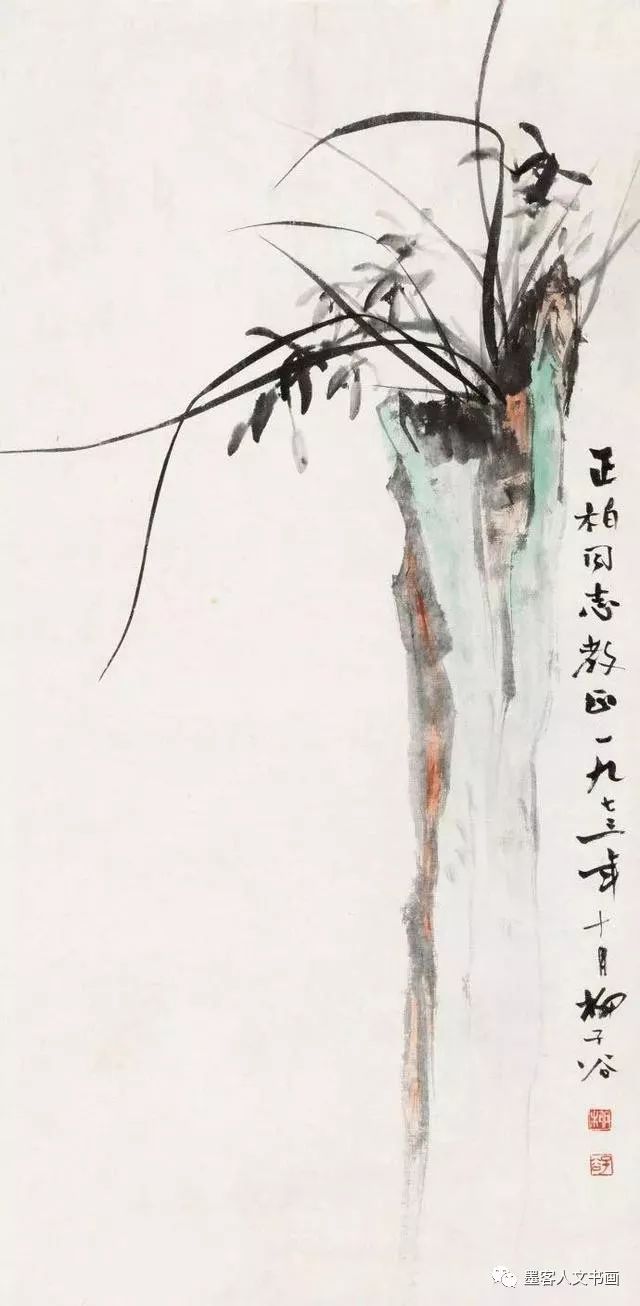 正柏同志教正一九七三年十月柳子谷
柳
子谷
墨客人文书画